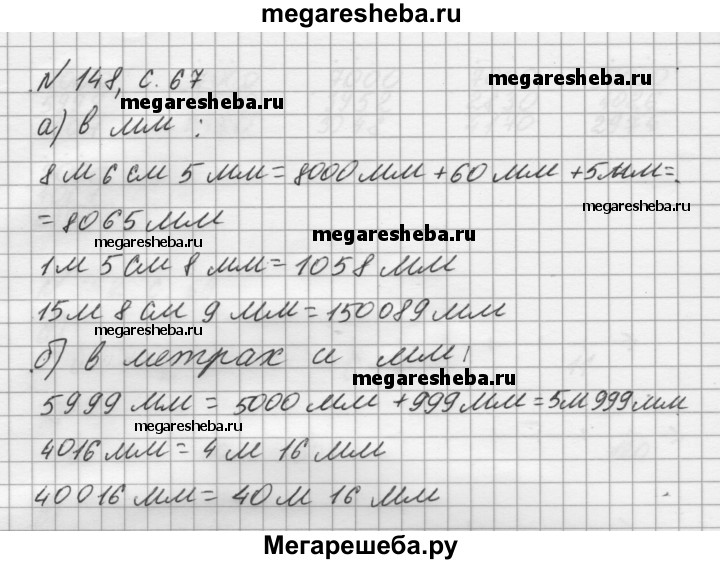 megaresheba.ru
N 148, с. 67
megaresheba.ru
megaresheba.ru
а) в мм:
8 м 6 см 5 мм = 8000 мм + 60 мм + 5 мм =
megaresheba.ru
= 8065 мм
megaresheba.ru
megaresheba.ru
1 м 5 см 8 мм = 1058 мм
15 м 8 см 9 мм = 150089 мм
megaresheba.ru
б) в метрах и мм:
megaresheba.ru
5999 мм = 5000 мм + 999 мм = 5 м 999 мм
megaresheba.ru
4016 мм = 4 м 16 мм
40016 мм = 40 м 16 мм
Мегарешеба.ру